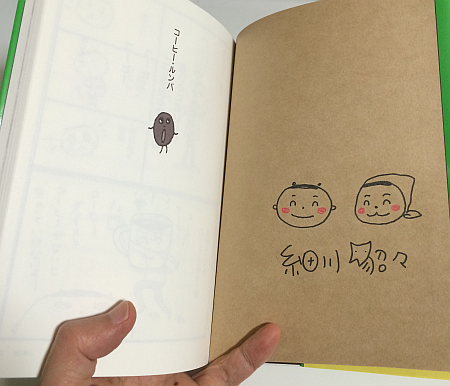 コーヒー・ルンバ
細川貂々